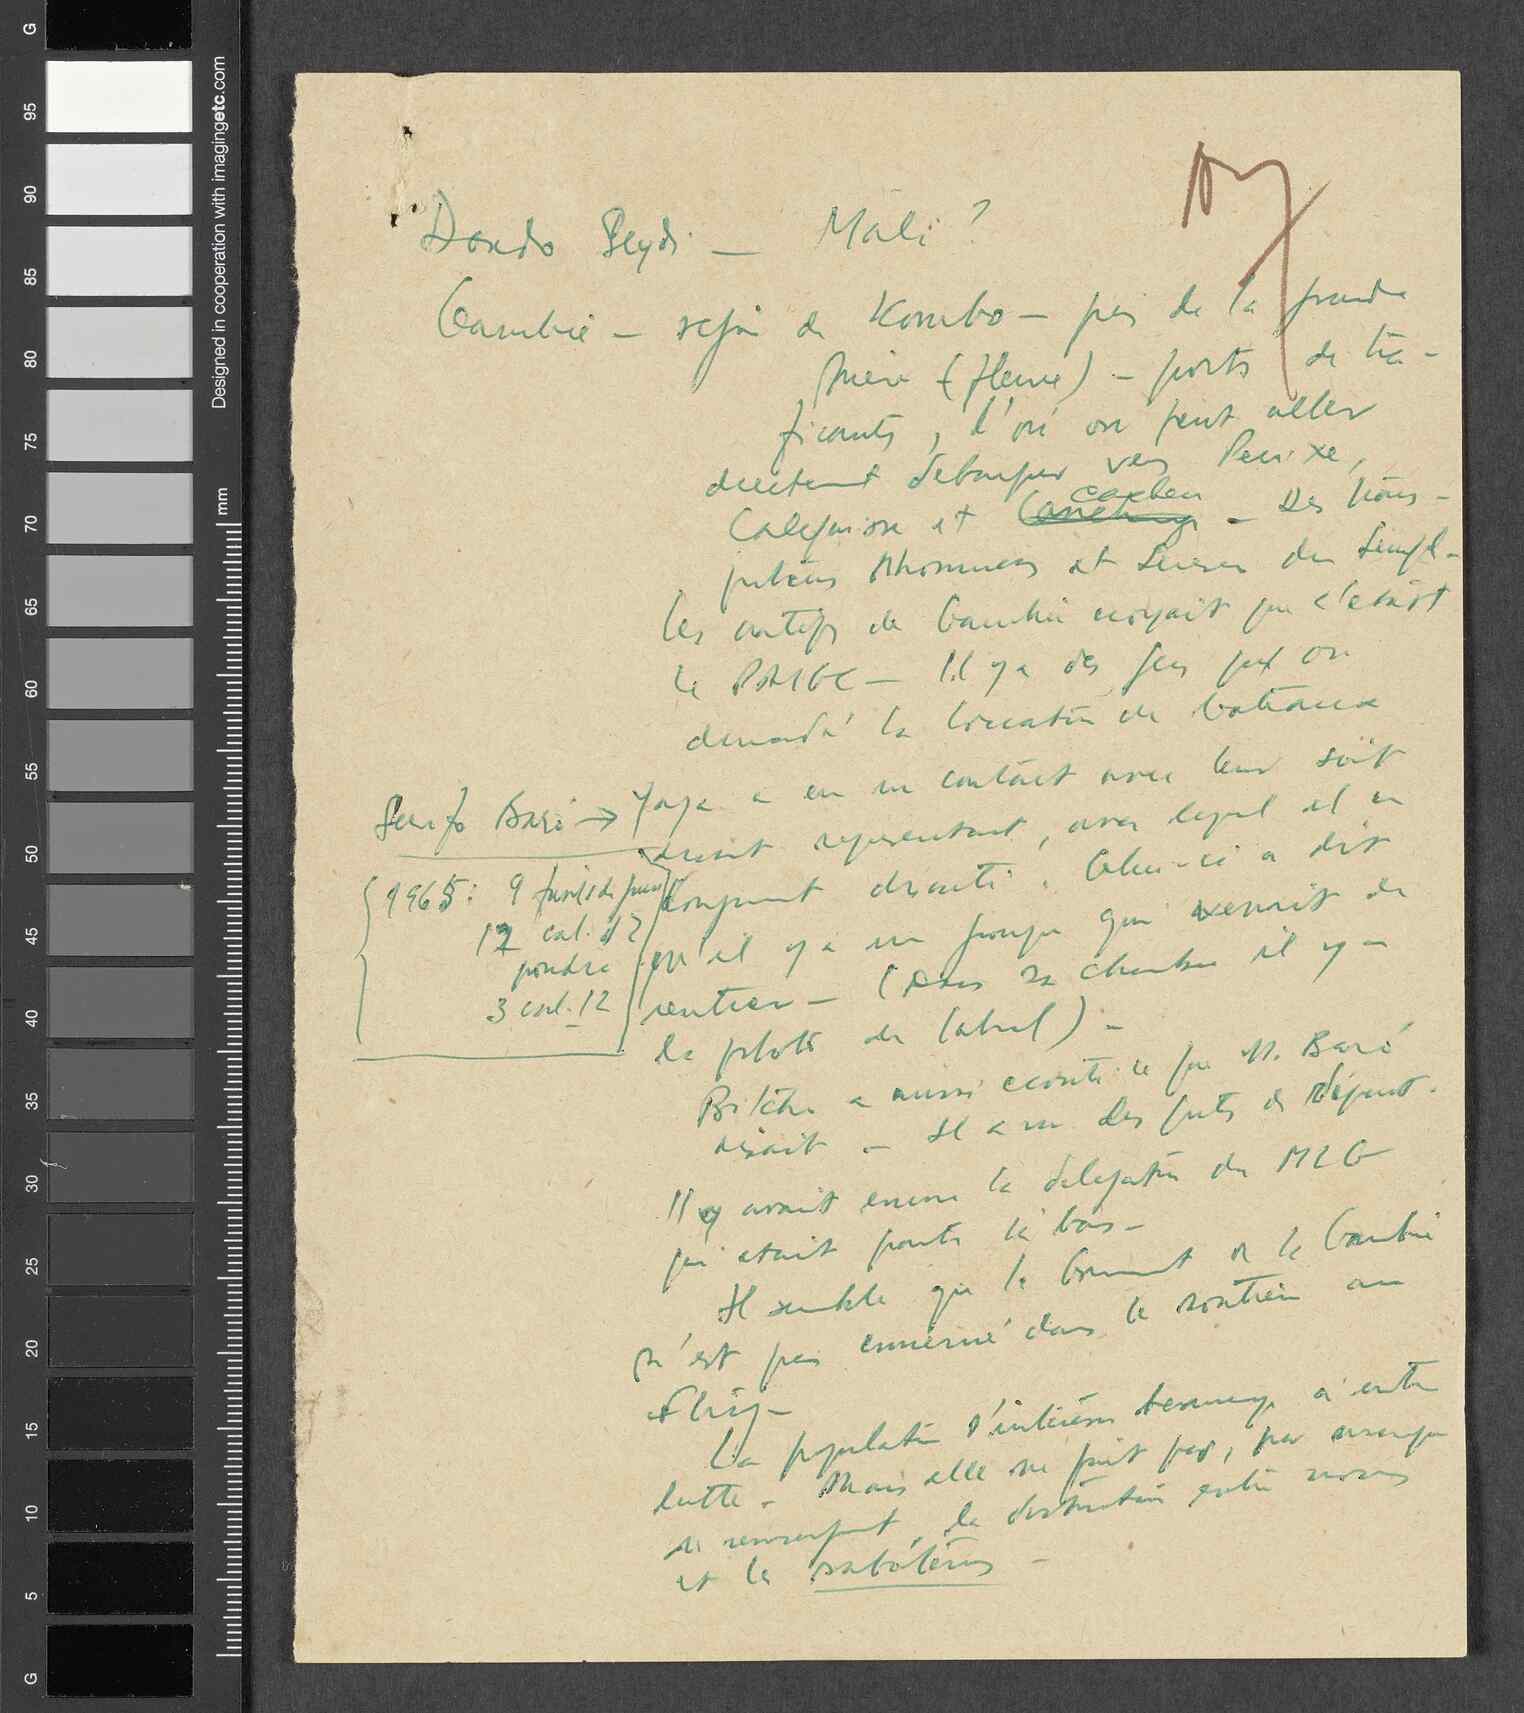 Dondo Seydi — Mali ?
Gambie — région de Kombo — près de la grande
rivière (fleuve) — ports de tra-
ficants, d'où on peut aller
directement débarquer vers Peixe,
Calequisse et Canchungo cacheu — Des trans-
porteurs et du Sénégal -
les autorités de Gambie croyait que c'était
le PAIGC — Il y a des gens qui on
demandé la location de bateaux
Serifo Baré → Yaya a eu un contact avec leur soit
disant représentant, avec lequel il a
longuement discuté. Celui-ci a dit
qu'il y a un groupe qui venait de
rentrer — (Dans sa chambre il y a
la photo de Cabral) -
{ 1965: 9 fusils de
17 cal. 12
poudre
3 cal. 12
a aussi écouté ce que M. Baré
disait — Il a vu des
Il y avait encore la délégation du MLG
qui était là bas -
Il semble que le Gouvernement de la Gambie
n'est pas concerné dans le soutien au
Fling -
La population s'intéresse beaucoup à cette
lutte - Mais elle ne fait pas, par manque
de renseignement, la distinction entre nous
et les saboteurs -
Designed in cooperation with imagingetc.com
mm
G
95
90
85
80
75
70
65
60
55
50
45
40
35
30
25
20
15
10
5
G